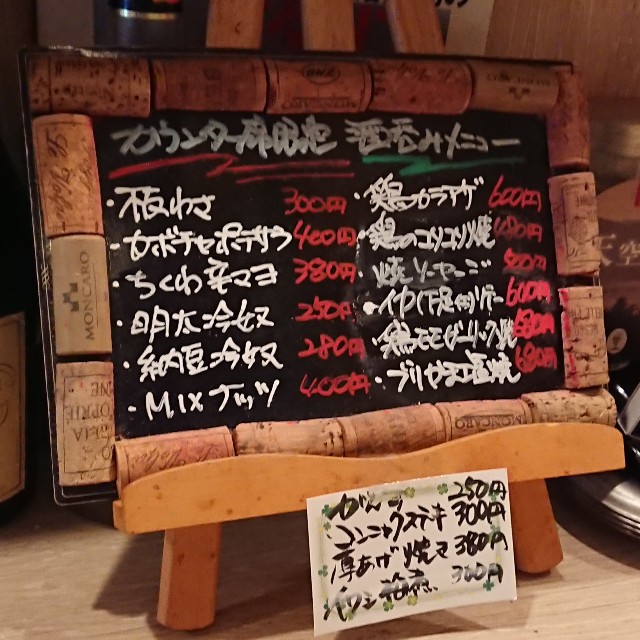 カウンター席限定 酒呑みメニュー
・板わさ 300円
・カボチャポテサラ 400円
・ちくわ辛マヨ 380円
・明太冷奴 250円
・納豆冷奴 280円
・MIXナッツ 400円
・鶏のカラアゲ 600円
・鶏のコリコリ焼
・焼ソーセージ
600円
・鶏モモガーリック焼
・ブリカマ塩焼
250円
コンニャクステーキ 300円
厚あげ焼 380円
イワシ 300円
MONCARO
MONCARO